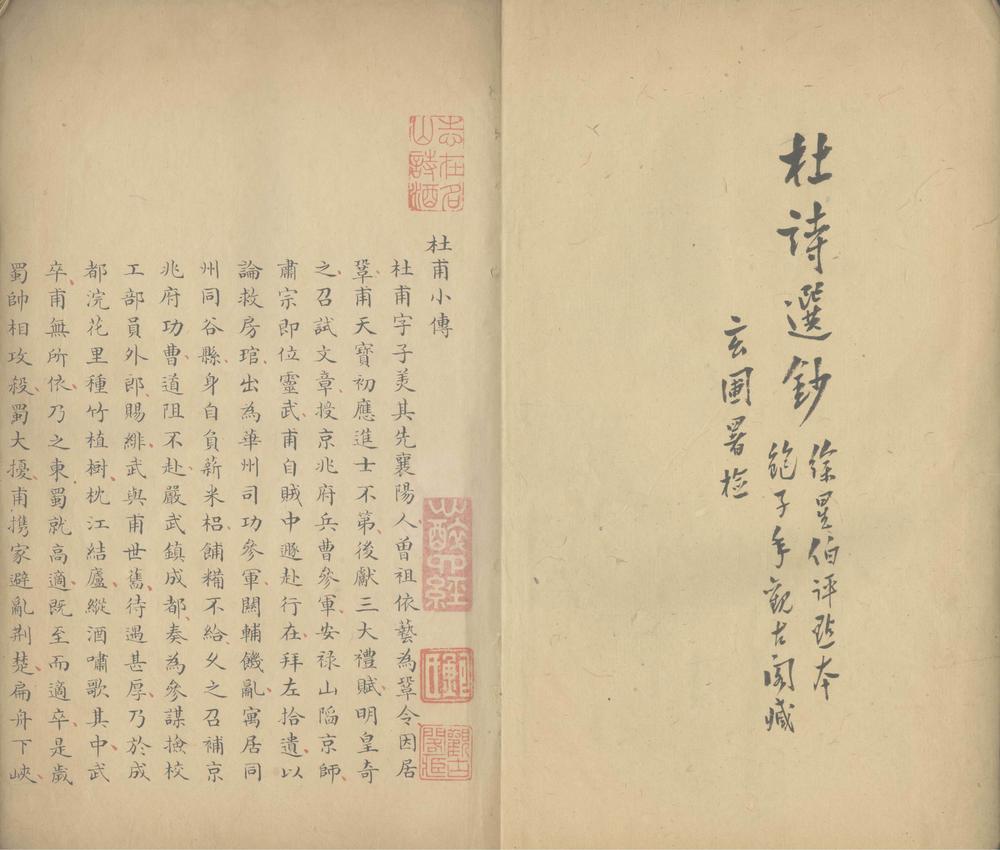 杜詩選鈔
徐星伯評點本
鮑子年觀古閣藏
玄圃署檢
志在名
山詩酒
杜甫小傳
杜甫字子美其先襄陽人曾祖依藝為鞏令因居
鞏甫天寶初應進士不第後獻三大禮賦明皇奇
之召試文章授京兆府兵曹參軍安祿山陷京師
肅宗即位靈武甫自賊中遯赴行在拜左拾遺以
論救房琯出為華州司功參軍關輔饑亂寓居同
州同谷縣身自負薪米梠餔糒不給久之召補京
兆府功曹道阻不赴嚴武鎮成都奏為參謀撿校
工部員外郎賜緋武與甫世舊待遇甚厚乃於成
都浣花里種竹植樹枕江結廬縱酒嘯歌其中武
卒甫無所依乃之東蜀就高適既至而適卒是歲
蜀帥相攻殺蜀大擾甫携家避亂荆楚扁舟下峽
觀古
閣藏